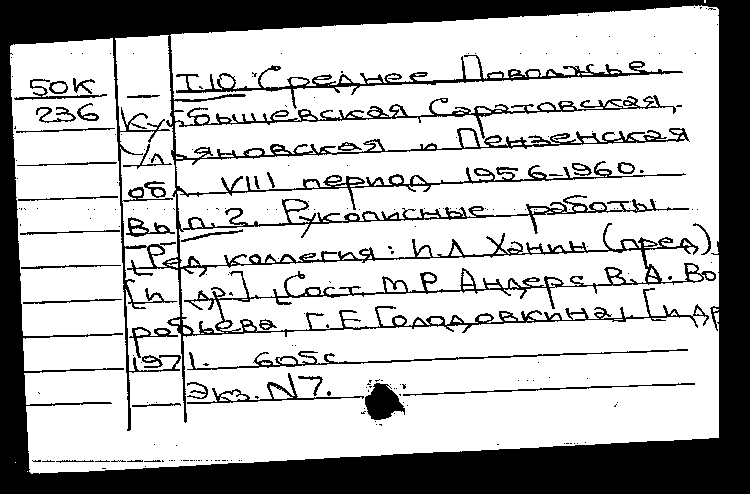 50К
236
Т.10. Среднее Поволжье.
Куйбышевская, Саратовская,
Ульяновская и Пензенская
обл. VIII период. 1956-1960.
Вып. 2. Рукописные работы
[Ред. коллегия: П.Л. Ханин (пред)
[и др.]. [Сост. М.Р. Андерс, В.А. Во
робьева, Г.Е. Голодовкина]. [и др
1971. 605с
Экз. N7.